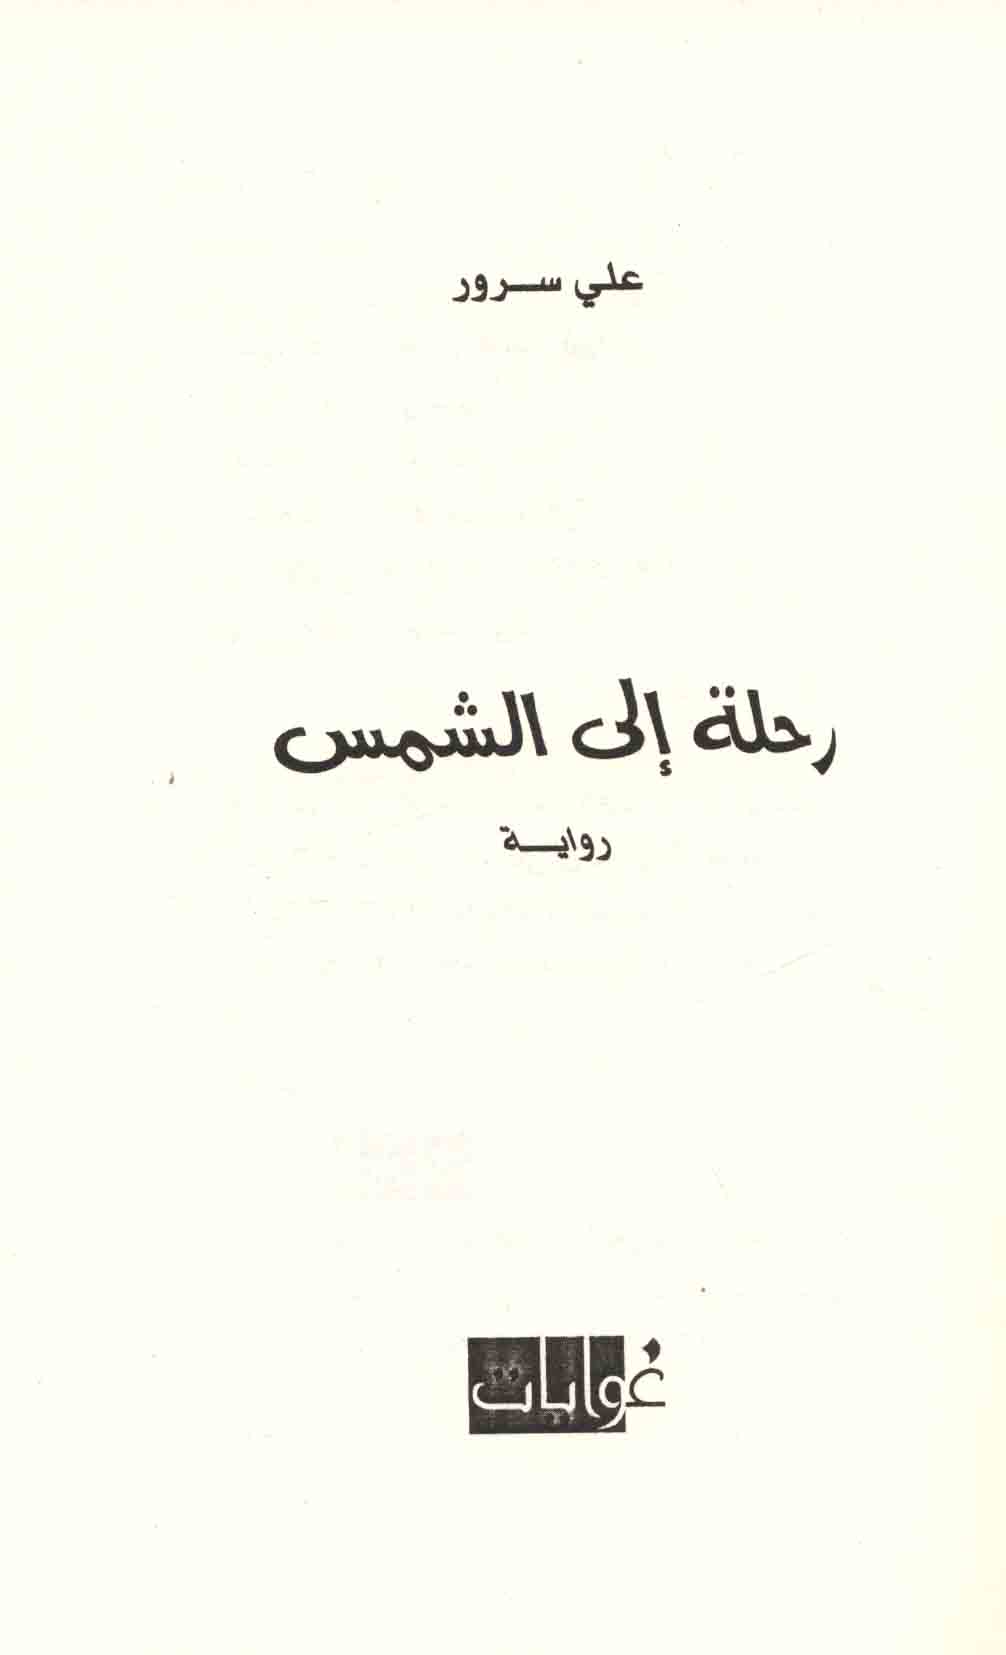 علي سرور
رحلة إلى الشمس
رواية
غوايات